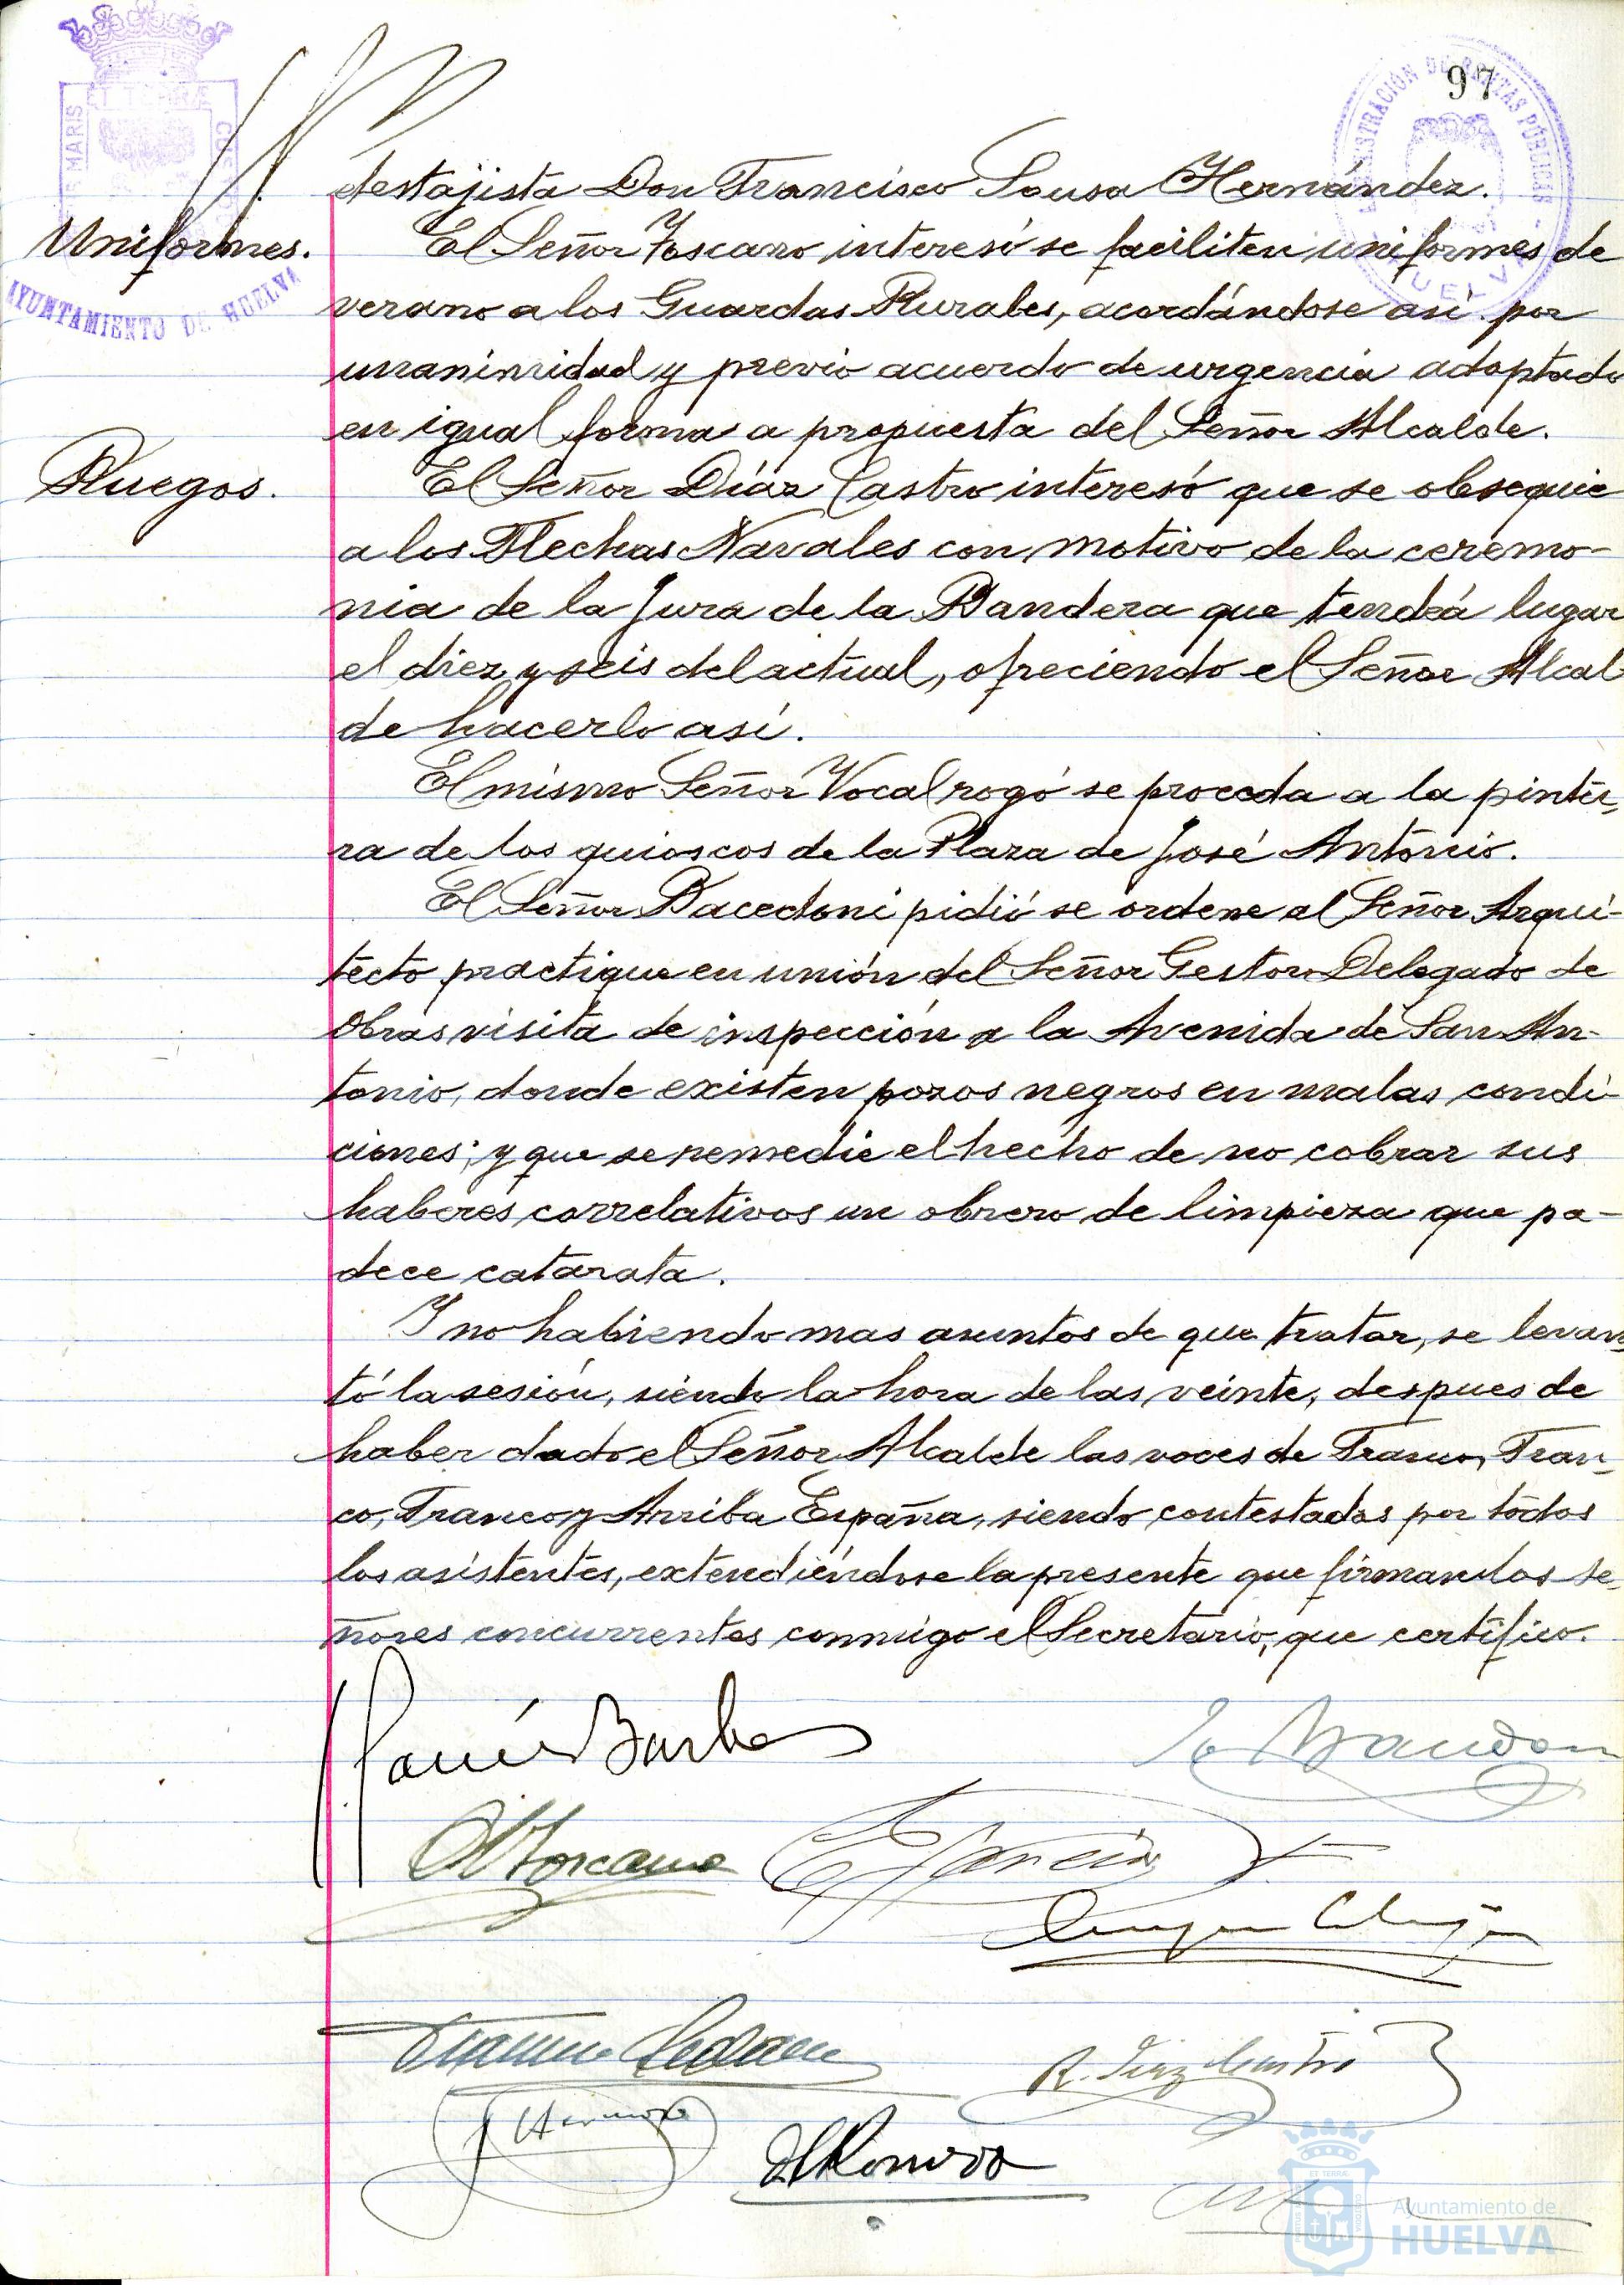 97
ET TERRÆ
S MARIS
ADMINISTRACIÓN DE RENTAS PÚBLICAS
HUELVA
destajista Don Francisco Sousa Hernández.
Uniformes.
El Señor Toscano interesó se faciliten uniformes de
AYUNTAMIENTO DE HUELVA
verano a los Guardas Rurales, acordándose así por
unanimidad y previo acuerdo de urgencia adoptado
en igual forma a propuesta del Señor Alcalde.
Ruegos.
El Señor Díaz Castro interesó que se obsequie
a los Flechas Navales con motivo de la ceremo-
nia de la Jura de la Bandera que tendrá lugar
el diez y seis del actual, ofreciendo el Señor Alcal
de hacerlo así.
El mismo Señor Vocal rogó se proceda a la pintu-
ra de los quioscos de la Plaza de José Antonio.
El Señor pidió se ordene al Señor Arqui-
tecto practique en unión del Señor Gestor Delegado de
Obras visita de inspección a la Avenida de San An-
tonio, donde existen pozos negros en malas condi-
ciones; y que se remedie el hecho de no cobrar sus
haberes correlativos un obrero de limpieza que pa-
dece catarata.
Y no habiendo mas asuntos de que tratar, se levan-
tó la sesión, siendo la hora de las veinte, despues de
haber dado el Señor Alcalde las voces de Franco, Fran-
co, Franco y Arriba España, siendo contestadas por todos
los asistentes, extendiéndose la presente que firman los se-
ñores concurrentes conmigo el Secretario, que certifico.
Barba
Toscano
García
R. Díaz Castro
Romero
ET TERRÆ
Ayuntamiento de
HUELVA